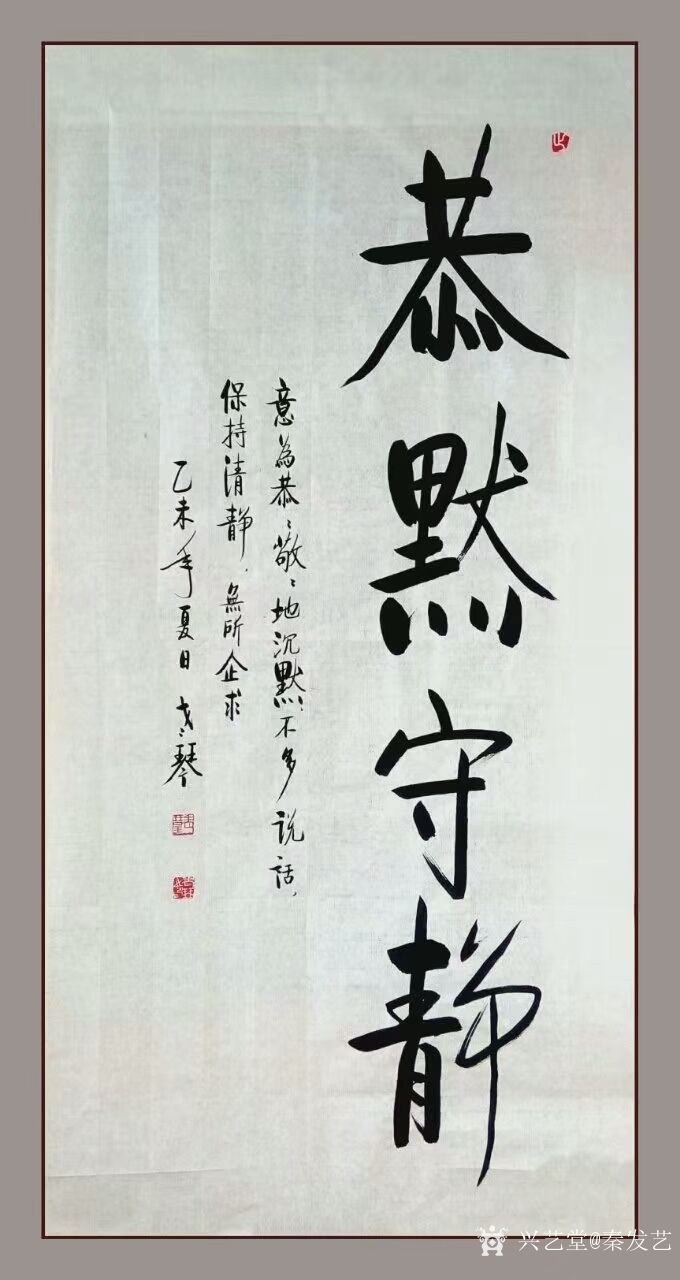 恭默守静
意為恭〻敬〻地沉默〻不多说話，
保持清静，無所企求
乙未年夏日 琴
兴艺堂@秦发艺